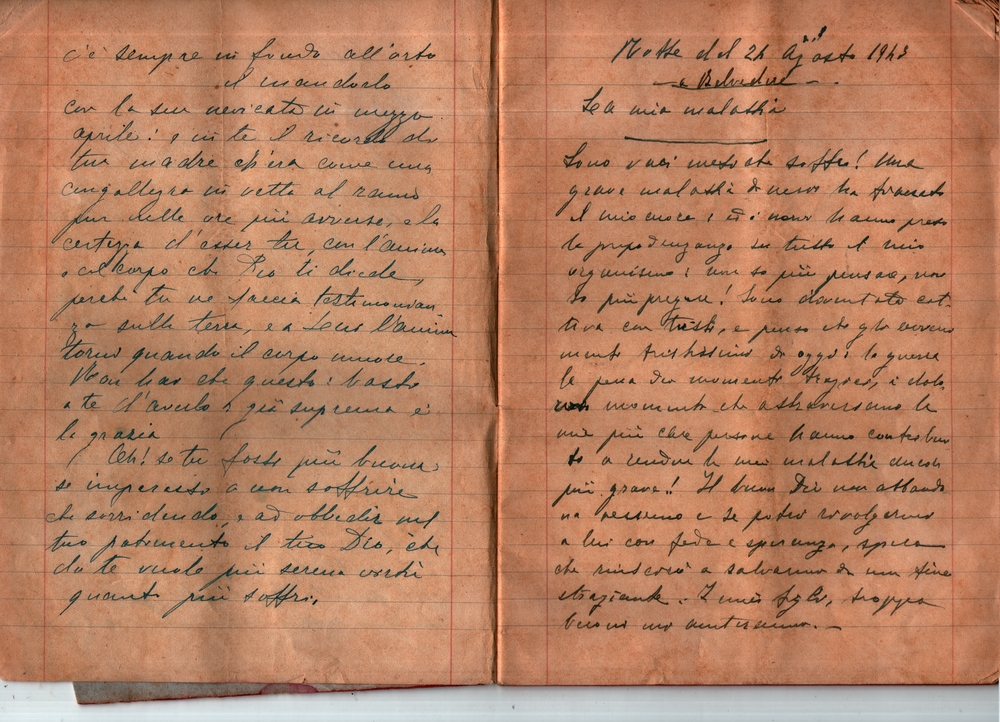 c'è sempre in fondo all'orto
il mandorlo
con la sua nevicata in mezzo
aprile: e in te il ricordo di
tua madre ch'era come una
cingallegra in vetta al ramo
pur nelle ore più avverse, e la
certezza d'esser tu, con l'anima
e col corpo che Dio ti diede,
perché tu ne faccia testimonian
za sulla terra, e a Lui l'anima
torni quando il corpo muore.
Non hai che questo: basta
a te d'averlo già suprema è
la grazia
Oh! se tu fossi più buona
se imparassi a non soffrire
che sorridendo, e ad obbedir nel
tuo patimento il tuo Dio, che
da te vuole più serena virtù
quanto più soffri.
Notte del 24 Agosto 1943
– a Belvedere –
La mia malattia
Sono vari mesi che soffro! Una
grave malattia di nervi ha
il mio cuore; ed i nervi hanno preso
la su tutto il mio
organismo: non so più pensare, non
so più pregare! Sono diventata cat-
tiva con tutti, e penso che gli avveni
menti tristissimi di oggi: la guerra
la pena dei momenti tragici, i dolo
momenti che attraversano le
mie più care persone hanno contribui
to a rendere la mia malattia ancor
più grave!! Il buon Dio non abbando
na nessuno e se potrò rivolgermi
a lui con fede e speranza, spero
che riuscirò a salvarmi da una fine
straziante. I miei figli, troppo
buoni mi aiuteranno. –